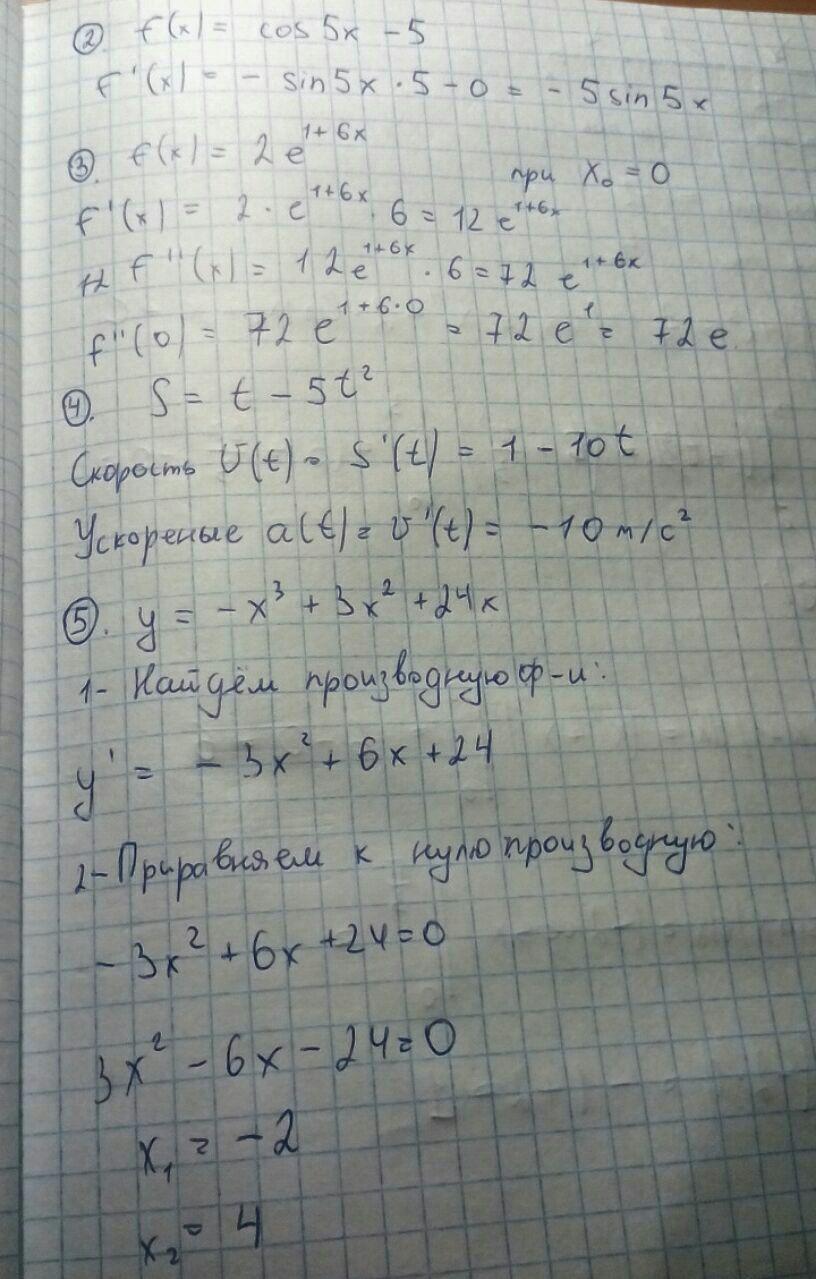 ② f(x) = cos 5x - 5
f'(x) = - sin 5x · 5 - 0 = - 5 sin 5x
③. f(x) = 2e^{1+6x} при x₀ = 0
f'(x) = 2 · e^{1+6x} · 6 = 12 e^{1+6x}
f''(x) = 12e^{1+6x} · 6 = 72 e^{1+6x}
f''(0) = 72 e^{1+6·0} = 72 e^1 = 72 e
④. S = t - 5t²
Скорость V(t) = S'(t) = 1 - 10t
Ускореные a(t) = v'(t) = -10 м/с²
⑤. y = -x³ + 3x² + 24x
1- Найдём производную ф-и:
y' = - 3x² + 6x + 24
2- Приравняем к нулю производную:
- 3x² + 6x + 24 = 0
3x² - 6x - 24 = 0
x₁ = -2
x₂ = 4